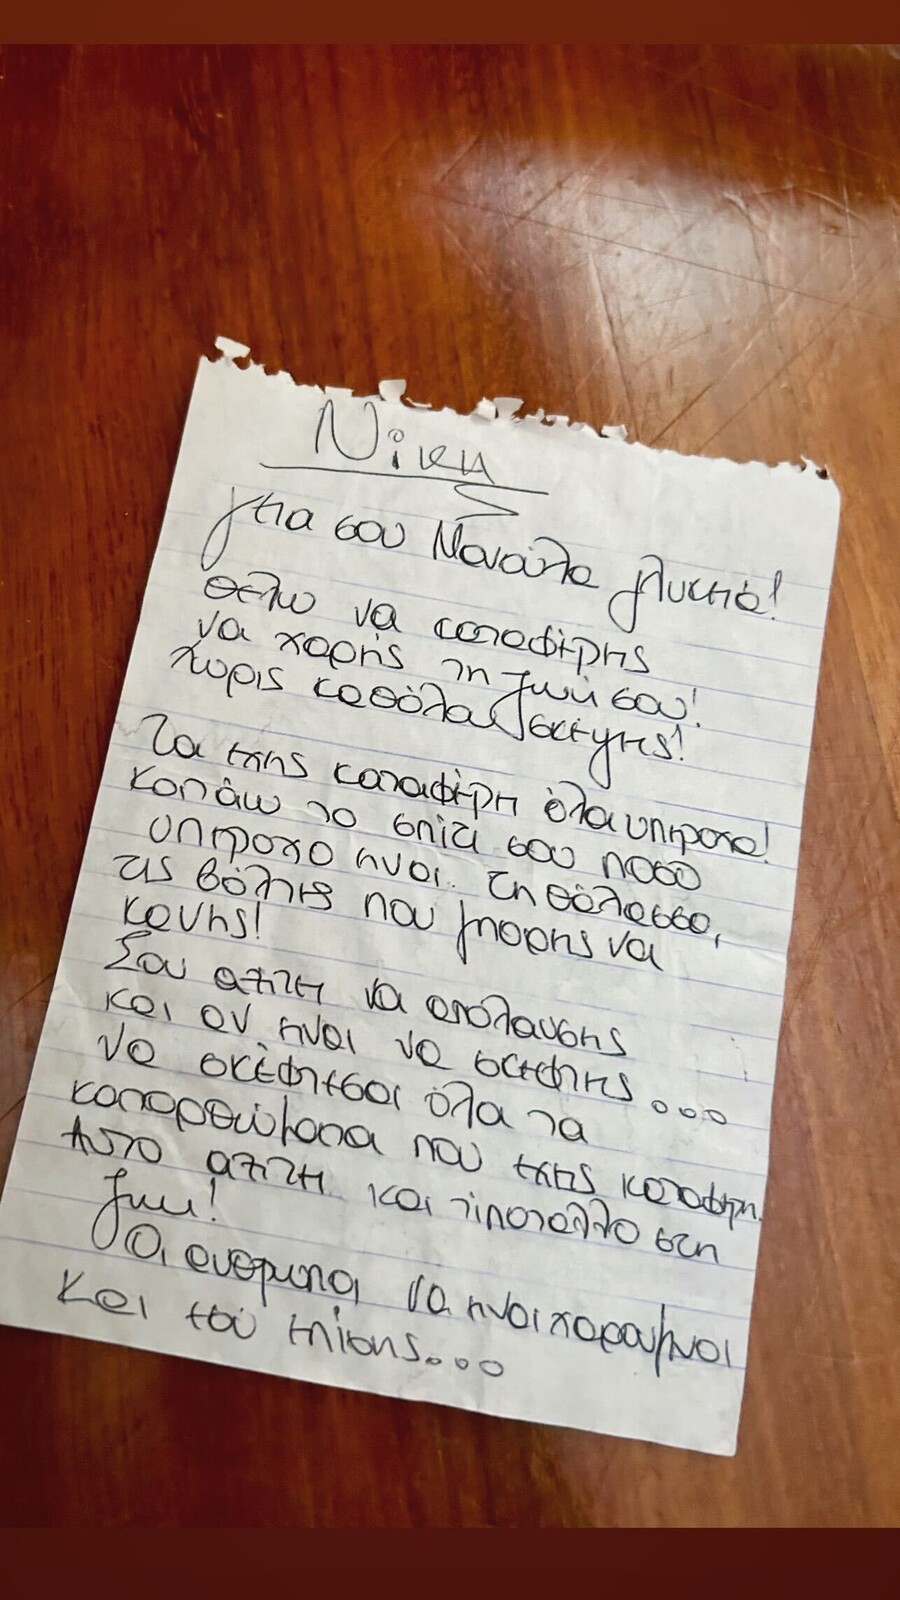 Νικη
γεια σου Μανούλα γλυκηά!
θέλω να καταφέρης
να χαρής τη ζωή σου!
χωρίς καθόλου σκέψης!
Τα εχης καταφέρη όλα υπέροχα!
κοιτάω το σπίτι σου ποσο
υπέροχο ηναι. τη θάλασσα,
τις βόλτες που μπορης να
κανης!
Σου αξιζη να απολαυσης
και αν ηναι να σκεφτης...
να σκέφτεσαι όλα τα
κατορθώματα που εχης καταφέρη.
Αυτο αξιζη και τιποτάλλο στη
ζωη!
Οι ανθρωποι να ηναι χαρουμενοι
και εσύ επίσης...